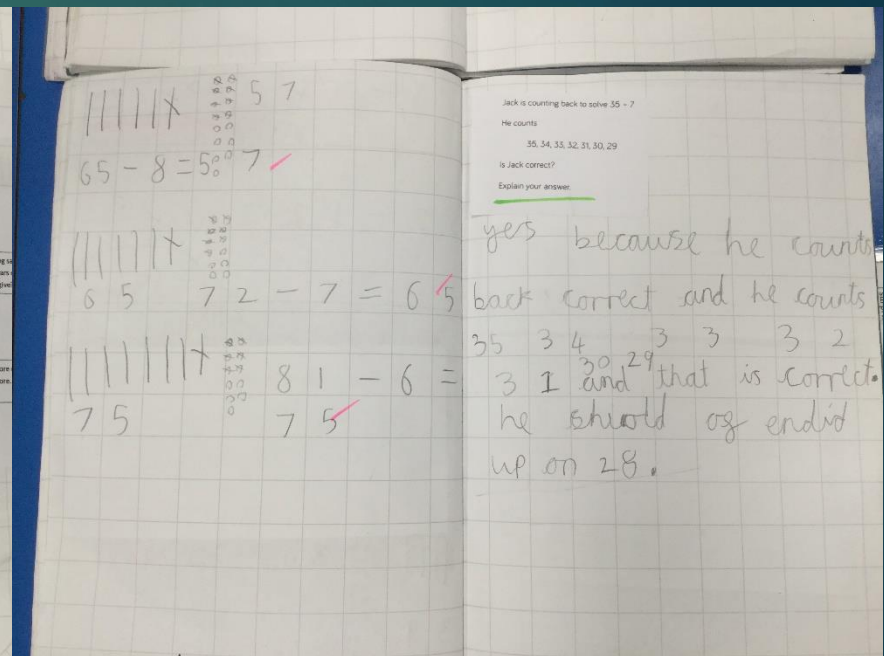 5 7
65 - 8 = 5 7
6 5 7 2 - 7 = 6 5
8 1 - 6 =
7 5 7 5
Jack is counting back to solve 35 - 7
He counts
35, 34, 33, 32, 31, 30, 29
Is Jack correct?
Explain your answer.
yes because he counts
back correct and he counts
35 34 33 32
31 30 29 and that is correct.
he shuold of endid
up on 28.